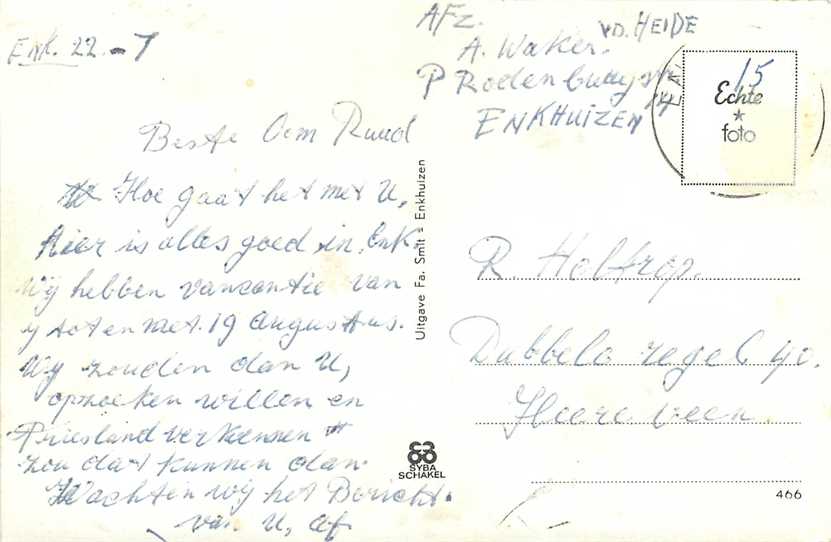 Enk. 22-7
Beste Oom Ruud
Hoe gaat het met U,
hier is alles goed in, Enk.
Wij hebben vancantie van
y tot en met. 19 augustus.
Wij zouden dan U,
opzoeken willen en
Friesland verkennen
zou dat kunnen dan
Wachten wij het Bericht.
van U, af
AFz. v.D. HEIDE
A. Waker.
P Rodenburg
14
ENKHUIZEN
15
Echte
*
foto
Uitgave Fa. Smit - Enkhuizen
R Holtrop.
Dubbele regel 40.
Heereveen.
SYBA
SCHAKEL
466